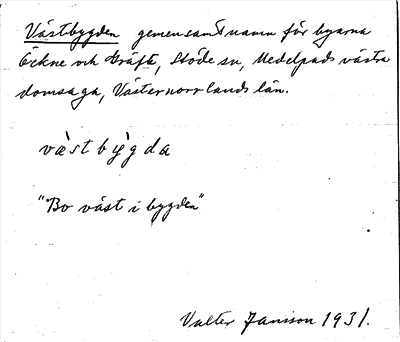 Västbygden gemensamt namn för byarna
Öckne och Gräfte, Stöde sn, Medelpads västra
domsaga, Västernorrlands län.
vä̀stby̆̀gda
"Bo väst i bygden"
Valter Jansson 1931.